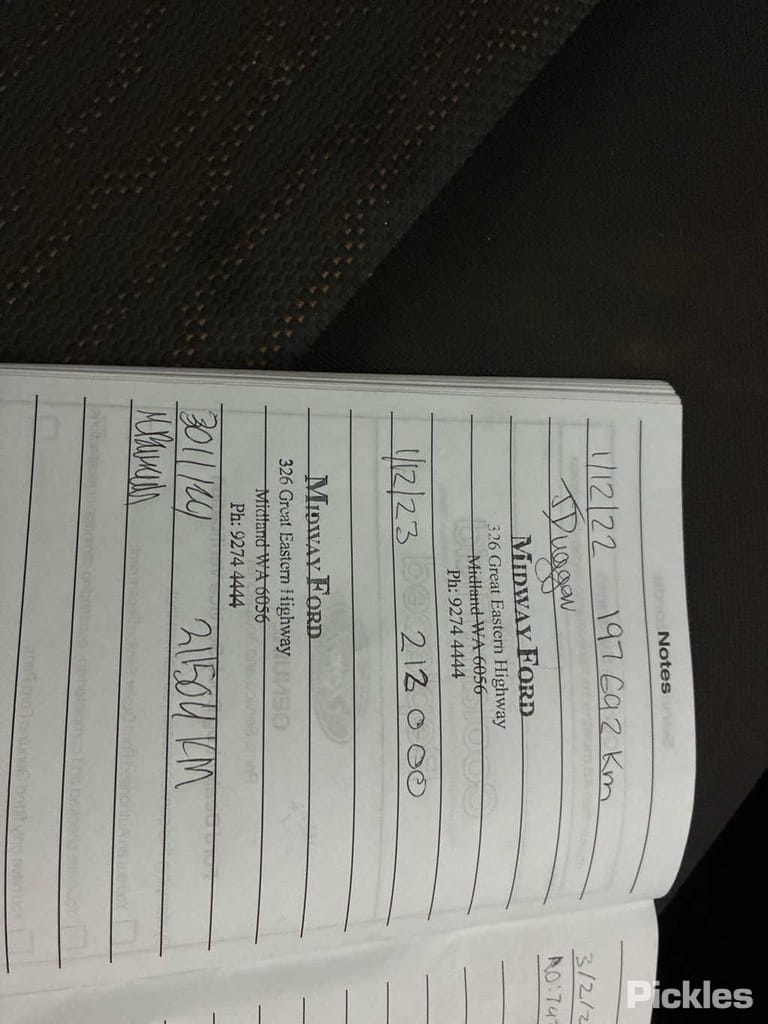 Notes
1/12/22 197 692 km
J Duggan
MIDWAY FORD
326 Great Eastern Highway
Midland WA 6056
Ph: 9274 4444
1/12/23 212 000
MIDWAY FORD
326 Great Eastern Highway
Midland WA 6056
Ph: 9274 4444
21504 KM
3/2/2
Pickles